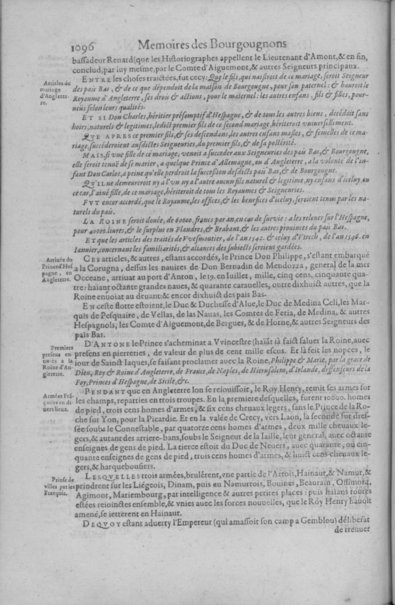 1096 Memoires des Bourgougnons
bassadeur Renard (que les Historiographes appellent le Lieutenant d'Amont, & en fin,
conclud, par luy mesme, par le Comte d'Aiguemont, & autres Seigneurs principaux.
Articles du mariage d'Angleterre.
ENTRE les choses traictées, fut cecy: Que le fils, qui naistroit de ce mariage, seroit Seigneur
des païs Bas, & de ce que dépendoit de la maison de Bourgougne, pour son paternel: & hauroit le
Royaume d'Angleterre, ses droits & actions, pour le maternel: les autres enfans, fils & filles, pour-
ueus selon leurs qualités.
ET si Don Charles, héritier presomptif d'Hespagne, & de tous les autres biens, decédast sans
hoirs, naturels & legitimes, ledict premier fils de ce second mariage, hériteroit vniuersellement.
QVE APRES ce premier fils, & ses descendans, les autres enfans masles, & femelles de ce ma-
riage, succederoient ausdictes Seigneuries, du premier fils, & de sa postérité.
MAIS, si vne fille de ce mariage, venoit a succeder aux Seigneuries des païs Bas, & Bourgougne,
elle seroit tenuë de se marier, a quelque Prince d'Allemagne, ou d'Angleterre, a la volonté de l'in-
fant Don Carlos, a peine qu'elle perdroit la succession desdicts païs Bas, & de Bourgougne.
QV'IL ne demeurerent ny a l'vn ny a l'autre aucun fils naturel & legitime, ny enfans d'iceluy en
ce cas, l'aisné fille, de ce mariage, hériteroit de tous les Royaumes & Seigneuries.
FVT encor accordé, que le Royaume, les offices, & les benefices d'iceluy, seroient tenus par les na-
turels du païs.
LA ROINE seroit douée, de 60000. francs par an, en cas de suruie: a les releuer sur l'Hespagne,
pour 40000. liures, & le surplus en Flandres, & Brabant, & les autres prouinces du païs Bas.
ET que les articles des traités de Vvesmonstier, de l'an 1542. & celuy d'Vtrech, de l'an 1546. en
Ianuier, concernans les familiarités, & alliances des subiects seroient gardées.
Arriuée du Prince d'Hespagne, en Angleterre.
CES articles, & autres, estans accordés, le Prince Don Philippe, s'estant embarqué
a la Corugna, dessus les nauires de Don Bernadin de Mendozza, general de la mer
Oceane, arriua au port d'Anton, le 19. en Iuillet, mille, cinq cens, cinquante qua-
tre: haiant octante grandes naues, & quarante carauelles, outre dixhuict autres, que la
Roine enuoioit au deuant: & encor dixhuict des païs Bas.
EN ceste flotte estoient, le Duc & Duchesse d'Alue, le Duc de Medina Celi, les Mar-
quis de Pesquaire, de Vellas, de las Nauas, les Comtes de Feria, de Medina, & autres
Hespagnols, les Comtes d'Aiguemont, de Bergues, & de Horne, & autres Seigneurs des
païs Bas.
Premiers presens enuoiés a la Roine d'Angleterre.
D'ANTONE le Prince s'achemina a Vvincestre (haiant ia faict saluer la Roine, auec
presens en pierreries, de valeur de plus de cent mille escus. Et la feit les nopces, le
iour de Sainct Iaques, se faisant proclamer auec la Roine, Philippe & Marie, par la grace de
Dieu, Roy & Roine d'Angleterre, de France, de Naples, de Hierusalem, d'Irlande, deffenseurs de la
Foy, Princes d'Hespagne, de Sicile, &c.
Armées Françoises de trois lieux.
PENDANT que en Angleterre lon se reiouissoit, le Roy Henry, remit ses armes sur
les champs, reparties en trois troupes. En la premiere desquelles, furent 10000. hommes
de pied, trois cens hommes d'armes, & six cens cheuaux legers, sans le Prince de la Ro-
che sur Yon, pour la Picardie. Et en la valée de Crecy, vers Laon, la seconde fut dres-
sée soubs le Connestable, par quatorze cens hommes d'armes, deux mille cheuaux le-
gers, & autant des arriere-bans, soubs le Seigneur de la Iaille, leur general, auec octante
enseignes de gens de pied. La tierce estoit du Duc de Neuers, auec quarante, ou cin-
quante enseignes de gens de pied, trois cens hommes d'armes, & huict cens cheuaux le-
gers, & harquebousiers.
Prinse de villes par les François.
LESQVELLES trois armées, brulérent, vne partie de l'Artois, Hainaut, & Namur, &
prindrent sur les Liégeois, Dinam, puis en Namurrois, Bouines, Beaurain,
Agimont, Mariembourg, par intelligence & autres petites places: puis haians toutes
estées reioinctes ensemble, & vnies auec les forces nouuelles, que le Roy Henry hauoit
amené, se iettérent en Hainaut.
DEQVOY estant aduerty l'Empereur (qui amassoit son camp a Gemblou) déliberat
de trauuer